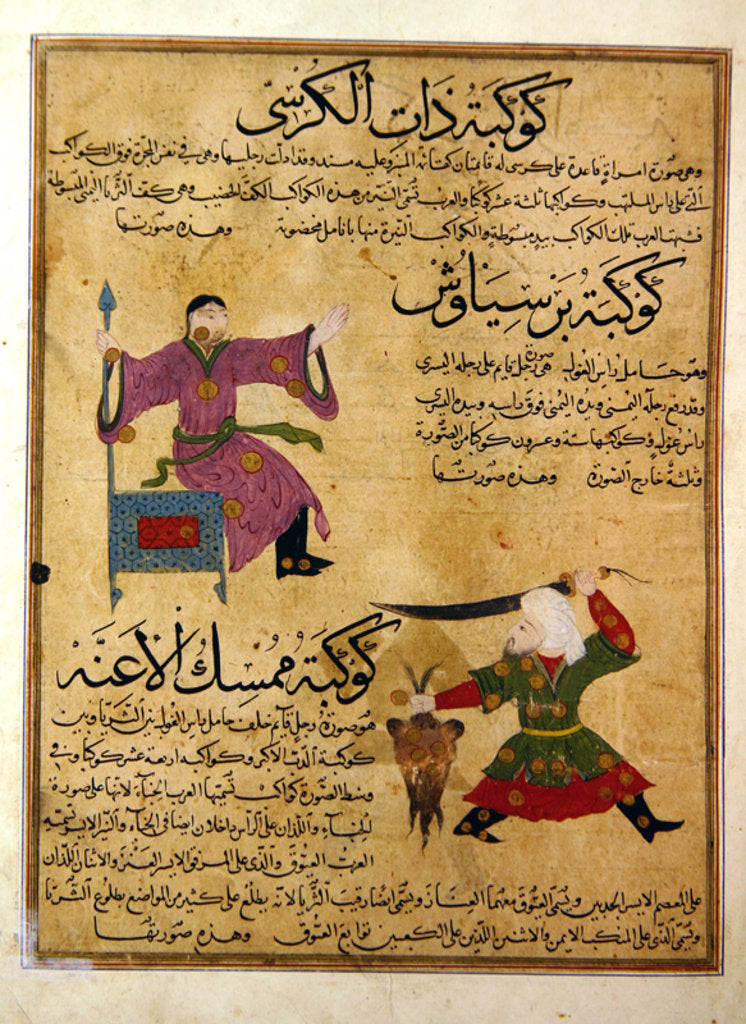 كوكبة ذات الكرسي
وهي صورة امراة قاعدة على كرسي له قائمتان كقائمة المنبر وعليه مسند وقد ادلت رجليها وهي في نفس المجرة فوق الكواكب
التي على راس الملتهب وكواكبها ثلثة عشر كوكبا والعرب تسمى النيّر من هذه الكواكب الكف الخضيب وهي كف الثريا اليمنى المبسوطة
فشبهت العرب تلك الكواكب بيد مبسوطة والكواكب النيرة منها بانامل مخضوبة وهذه صورتها
كوكبة برسياوش
وهو حامل راس الغول هي صورة رجل قايم على رجله اليسرى
وقد رفع رجله اليمنى ويده اليمنى فوق راسه وبيده اليسرى
راس غول وكواكبها ستة وعشرون كوكبا من الصورة
وثلثة خارج الصورة وهذه صورتها
كوكبة ممسك الاعنّه
هو صورة رجل قايم خلف حامل راس الغول بين الثريا وبين
كوكبة الدب الاكبر وكواكبه اربعة عشر كوكبا وفي
وسط الصورة كواكب تسميها العرب الخباء لانها على صورة
الخباء واللذان على الراس داخلان ايضا في الخباء والنير الايسر تسميه
العرب العيوق والذي على المرفق الايسر العنز والاثنان اللذان
على المعصم الايسر الجديين ويسمى العيوق معهما العناز ويسمى ايضا رقيب الثريا لانه يطلع على كثير من المواضع بطلوع الثريا
ويسمى الذي على المنكب الايمن والاثنين اللذين على الكعبين توابع العيوق وهذه صورتها